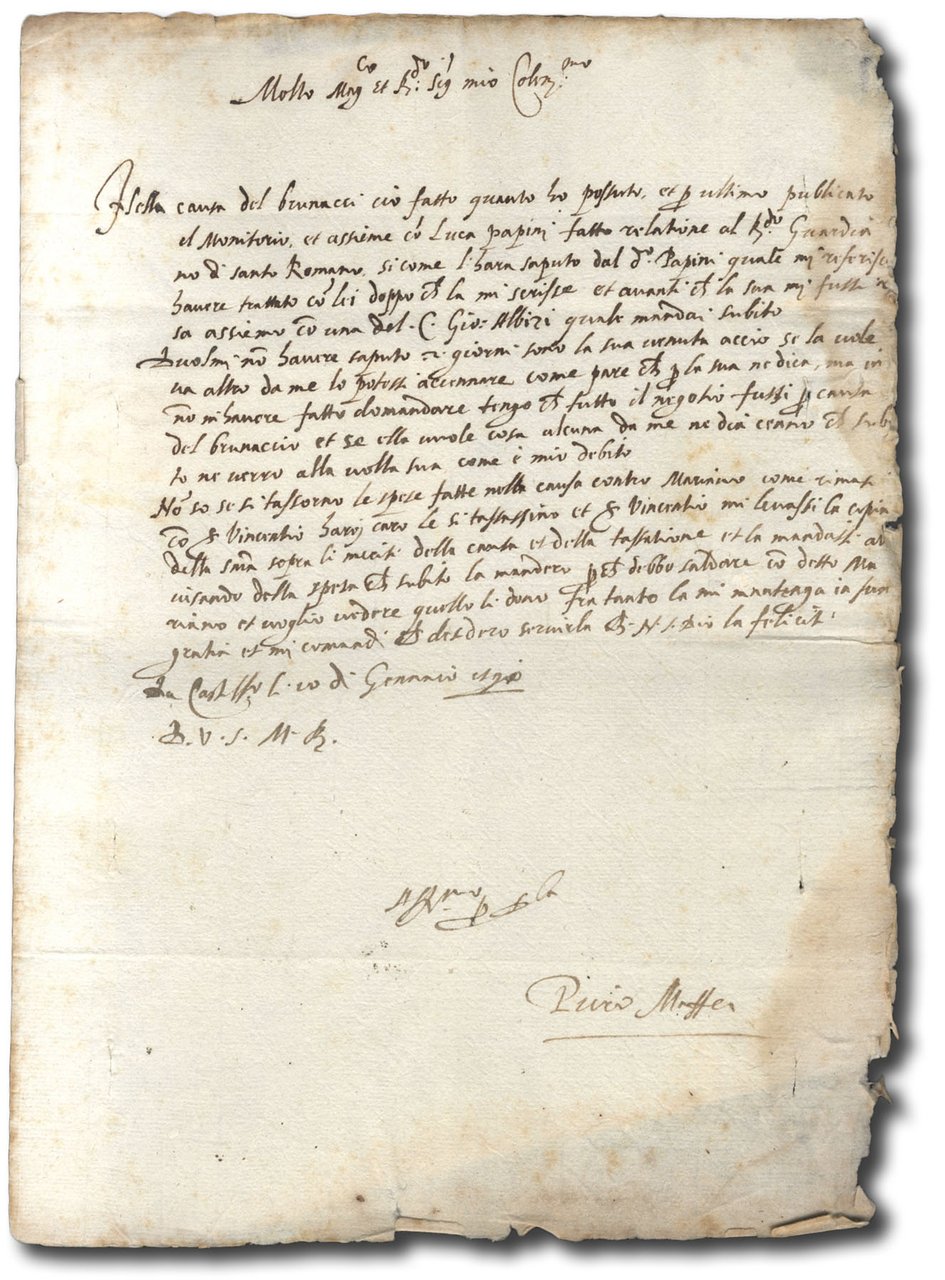 Molto Mag.co et R.do Sig.r mio Col.mo
Nella causa del brunacci ciò fatto quanto ho possuto, et p ultimo publicato
il Monitorio, et assieme cō Luca papini fatto relatione al R.do Guardia
no di santo Romano, si come l'hara saputo dal d.o Papini quale mi riferisce
havere trattato cō lei doppo ch la mi scrisse et avanti ch la sua mi fussi re
sa assieme cō una del C. Gio: Albizi quale mandai subito
nō havere saputo giorni sono la sua venuta acciò se la vole
va altro da me lo potessi accennare come pare ch p la sua ne dica, ma in
nō m'havere fatto domandare tengo ch tutto il negotio fussi p causa
del brunaccio et se ella vuole cosa alcuna da me ne dia cenno ch subi
to ne verro alla volta sua come è mio debito
Nō so se si tassorno le spese fatte nella causa contro Marino come rimasi
cō Vincentio caro le si tassassino et Vincentio mi levassi la copia
della sopra li meriti della causa et della tassatione et la mandassi av
visando della spesa ch subito la mandero p ch debbo saldare cō detto Ma
riano et voglio vedere quello li devo fra tanto la mi mantenga in sua
gratia et mi comandi ch desidero servirla N. S. Dio la feliciti
Da Castel.o li 10 di Gennaio
D. V. S. M. R.
Aff.mo p
Piero Maffei